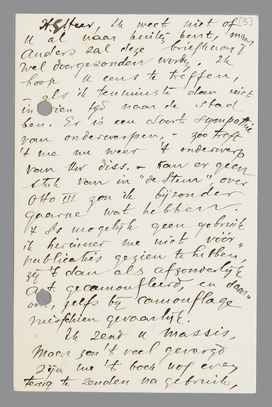 H.G. Heer, Ik weet niet of [5]
U al naar buiten bent, maar
anders zal deze briefkaart
wel doorgezonden worden. Ik
hoop U eens te treffen,
- als ik tenminste dan niet
in dien tijd naar de stad
ben. Er is een soort sympathie
van onderwerpen, - zoo treft
me nu weer 't onderwerp
van Uw diss. - kan er geen
stuk van in "de Stem" over
Otto III zou ik bijzonder
gaarne wat hebben.
Is mogelijk geen gebruik
ik herinner me niet voor-
publicaties gezien te hebben,
zij 't dan als afzonderlijk
art. gecamoufleerd, en daar-
om, zelfs bij camouflage
misschien gevaarlijk.
Ik zend U Massis,
Maar zou 't veel gevergd
zijn me 't boek nog even
terug te zenden na gebruik,